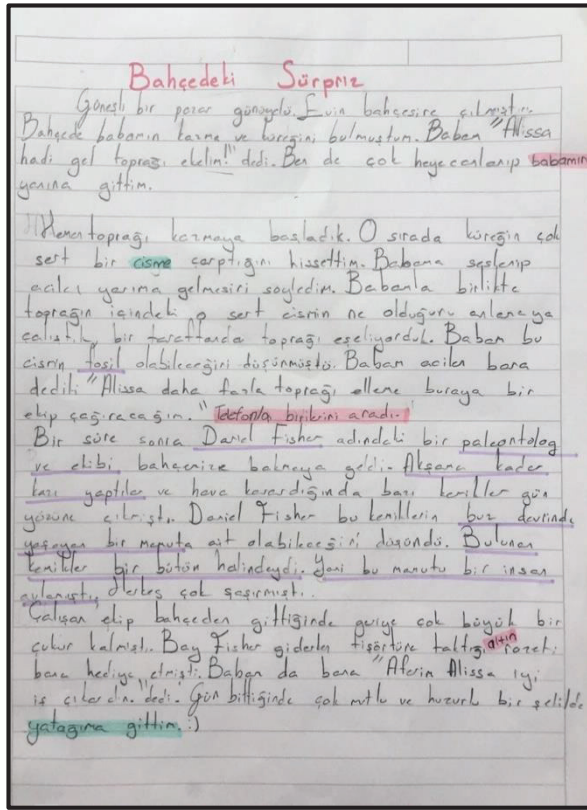 Bahçedeki Sürpriz
Güneşli bir pazar günüydü. Evin bahçesine çıkmıştım.
Bahçede babamın kazma ve küreğini bulmuştum. Babam "Alissa
hadi gel toprağı ekelim!" dedi. Ben de çok heyecanlanıp babamın
yanına gittim.
Hemen toprağı kazmaya başladık. O sırada küreğin çok
sert bir cisme çarptığını hissettim. Babama seslenip
acilci yanıma gelmesini söyledim. Babamla birlikte
toprağın içindeki o sert cismin ne olduğunu anlamaya
çalıştık, bir taraftanda toprağı eşeliyorduk. Babam bu
cismin fosil olabileceğini düşünmüştü. Babam acilen bana
dediki "Alissa daha fazla toprağı elleme buraya bir
ekip çağıracağım." Telefonla birilerini aradı.
Bir süre sonra Daniel Fisher adındaki bir paleontolog
ve ekibi bahçemize bakmaya geldi. Akşama kadar
kazı yaptılar ve hava karardığında bazı kemikler gün
yüzüne çıkmıştı. Daniel Fisher bu kemiklerin buz devrinde
yaşayan bir mamuta ait olabileceğini düşündü. Bulunan
kemikler bir bütün halindeydi. Yani bu mamutu bir insan
avlamıştı. Herkes çok şaşırmıştı.
Çalışan ekip bahçeden gittiğinde geriye çok büyük bir
çukur kalmıştı. Bay Fisher giderken tişörtüne taktığı altın rozeti
bana hediye etmişti. Babam da bana "Aferin Alissa iyi
iş çıkardın." dedi. Gün bittiğinde çok mutlu ve huzurlu bir şekilde
yatağıma gittim. :)